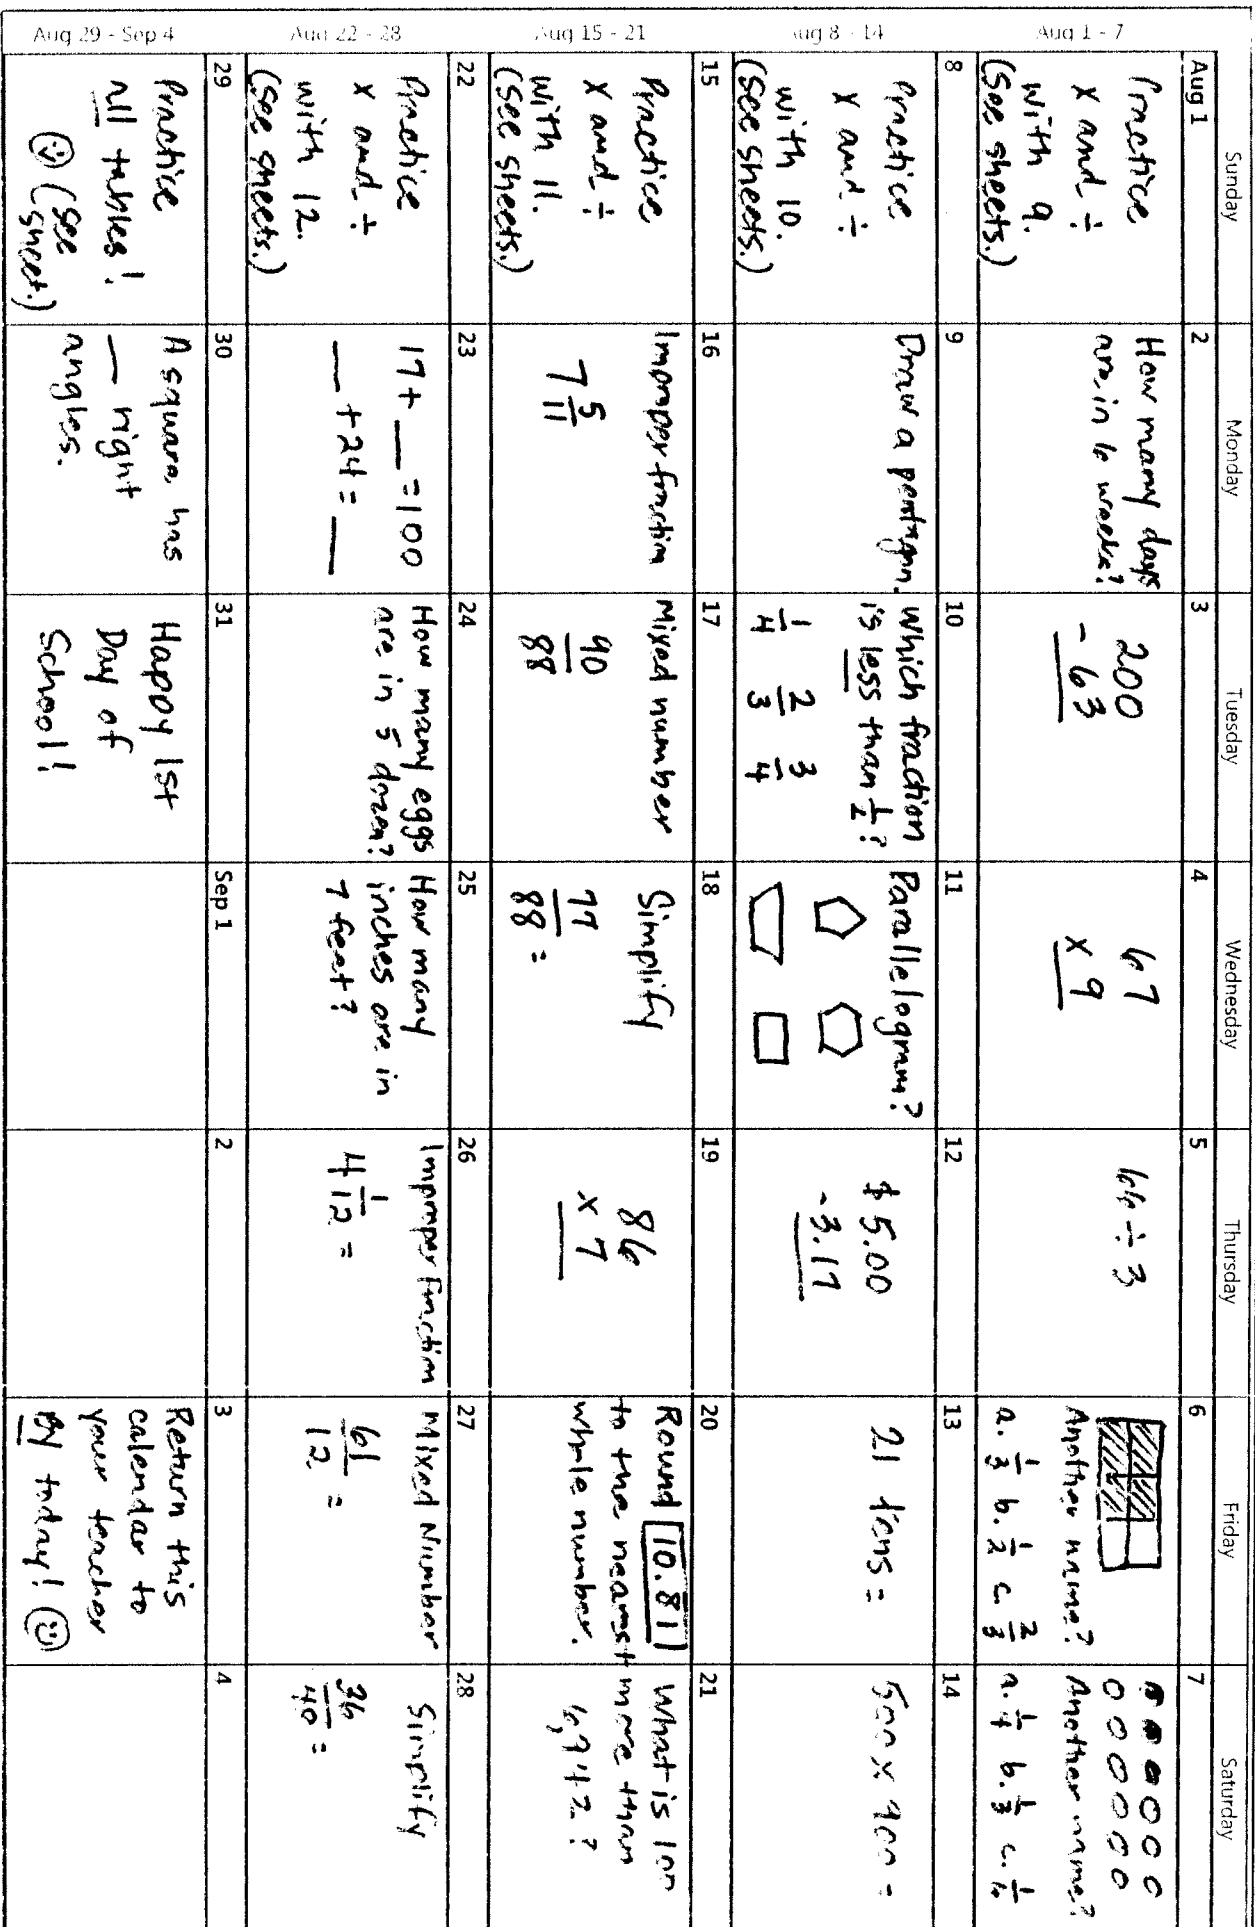 Sunday
Monday
Tuesday
Wednesday
Thursday
Friday
Saturday
Aug 1 - 7
Aug 1
Practice
x and ÷
with 9.
(see sheets.)
2
How many days
are in 6 weeks?
3
200
- 63
4
67
x 9
5
66 ÷ 3
6
Another name?
a. 1/3 b. 1/2 c. 2/3
7
Another name?
a. 1/4 b. 1/3 c.
Aug 8 - 14
8
Practice
x and ÷
with 10.
(see sheets.)
9
Draw a pentagon.
10
Which fraction
is less than 1/2?
1/4 2/3 3/4
11
Parallelogram?
12
$5.00
- 3.17
13
21 tens =
14
500 x 900 =
Aug 15 - 21
15
Practice
x and ÷
with 11.
(see sheets.)
16
Improper fraction
7 5/11
17
Mixed number
90/88
18
Simplify
77/88 =
19
86
x 7
20
Round 10.81
to the nearest
whole number.
21
What is 100
more than
6,942?
Aug 22 - 28
22
Practice
x and ÷
with 12.
(see sheets.)
23
17 + __ = 100
__ + 24 = __
24
How many eggs
are in 5 dozen?
25
How many
inches are in
7 feet?
26
Improper Fraction
4 1/12 =
27
Mixed Number
61/12 =
28
Simplify
36/40 =
Aug 29 - Sep 4
29
Practice
all tables!
(see
sheet.)
30
A square has
__ right
angles.
31
Happy 1st
Day of
School!
Sep 1
2
3
Return this
calendar to
your teacher
by today!
4